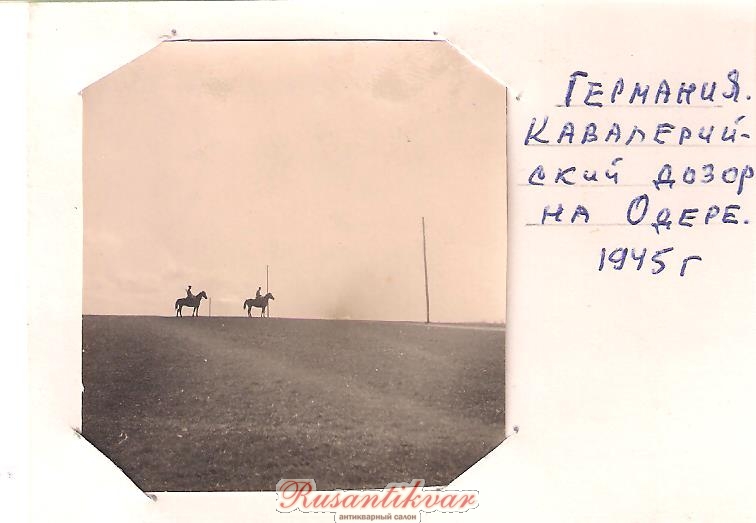 Германия.
Кавалерий-
ский дозор
на Одере.
1945 г
Rusantikvar
антикварный салон